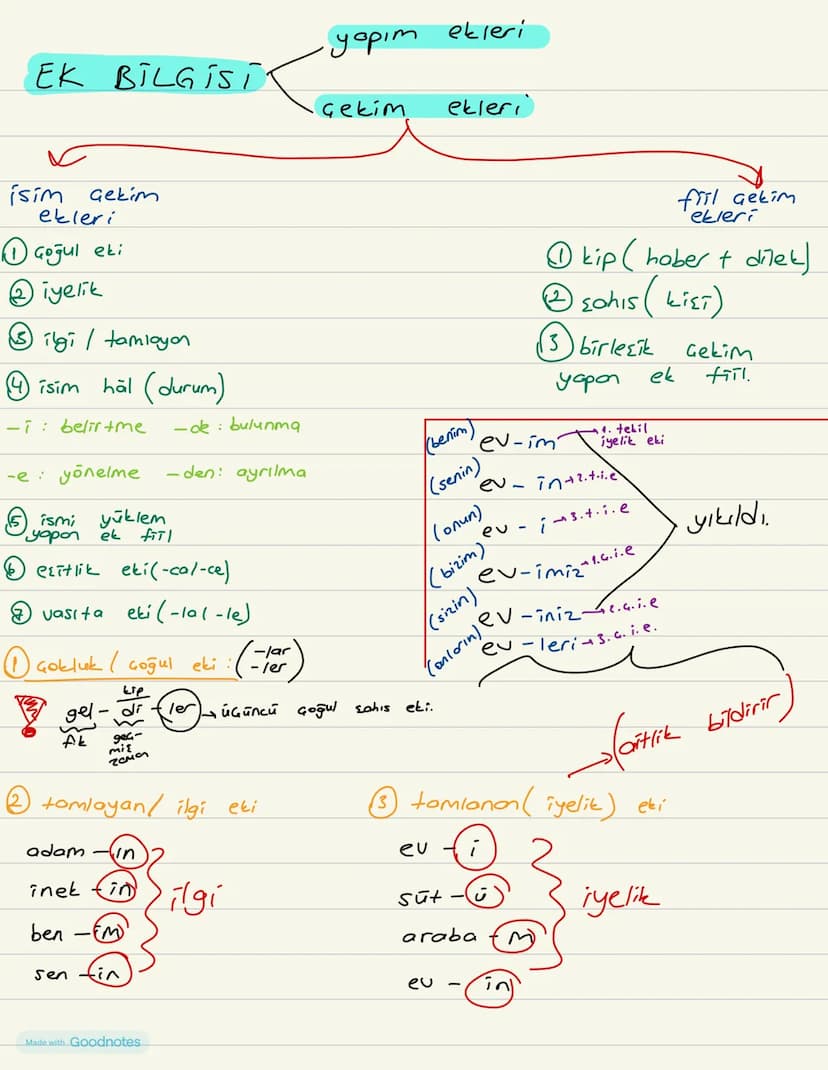 EK BİLGİSİ
yapım ekleri
çekim ekleri
isim çekim
ekleri
① çoğul eki
② iyelik
③ ilgi / tamlayan
④ isim hâl (durum)
-i : belirtme -de : bulunma
-e : yönelme -den : ayrılma
⑤ ismi yüklem
yapan ek fiil
⑥ eşitlik eki (-ca/-ce)
⑦ vasıta eki (-la/-le)
fiil çekim
ekleri
① kip (haber + dilek)
② şahıs (kişi)
③ birleşik çekim
yapan ek fiil.
(benim) ev-im → 1. tekil
iyelik eki
(senin) ev - in → 2.t.i.e
(onun) ev - i → 3.t.i.e
(bizim) ev-imiz → 1.ç.i.e
(sizin) ev-iniz → 2.ç.i.e
(onların) ev-leri → 3.ç.i.e.
yıkıldı.
→ (aitlik bildirir)
① çokluk / çoğul eki : (-lar
-ler)
kip
gel - di + ler → üçüncü çoğul şahıs eki.
fik
geç-
miş
zaman
② tamlayan / ilgi eki
adam - ın
inek + in
ben - im
sen + in
ilgi
③ tamlanan (iyelik) eki
ev + i
süt - ü
araba + m
ev - in
iyelik
Made with Goodnotes